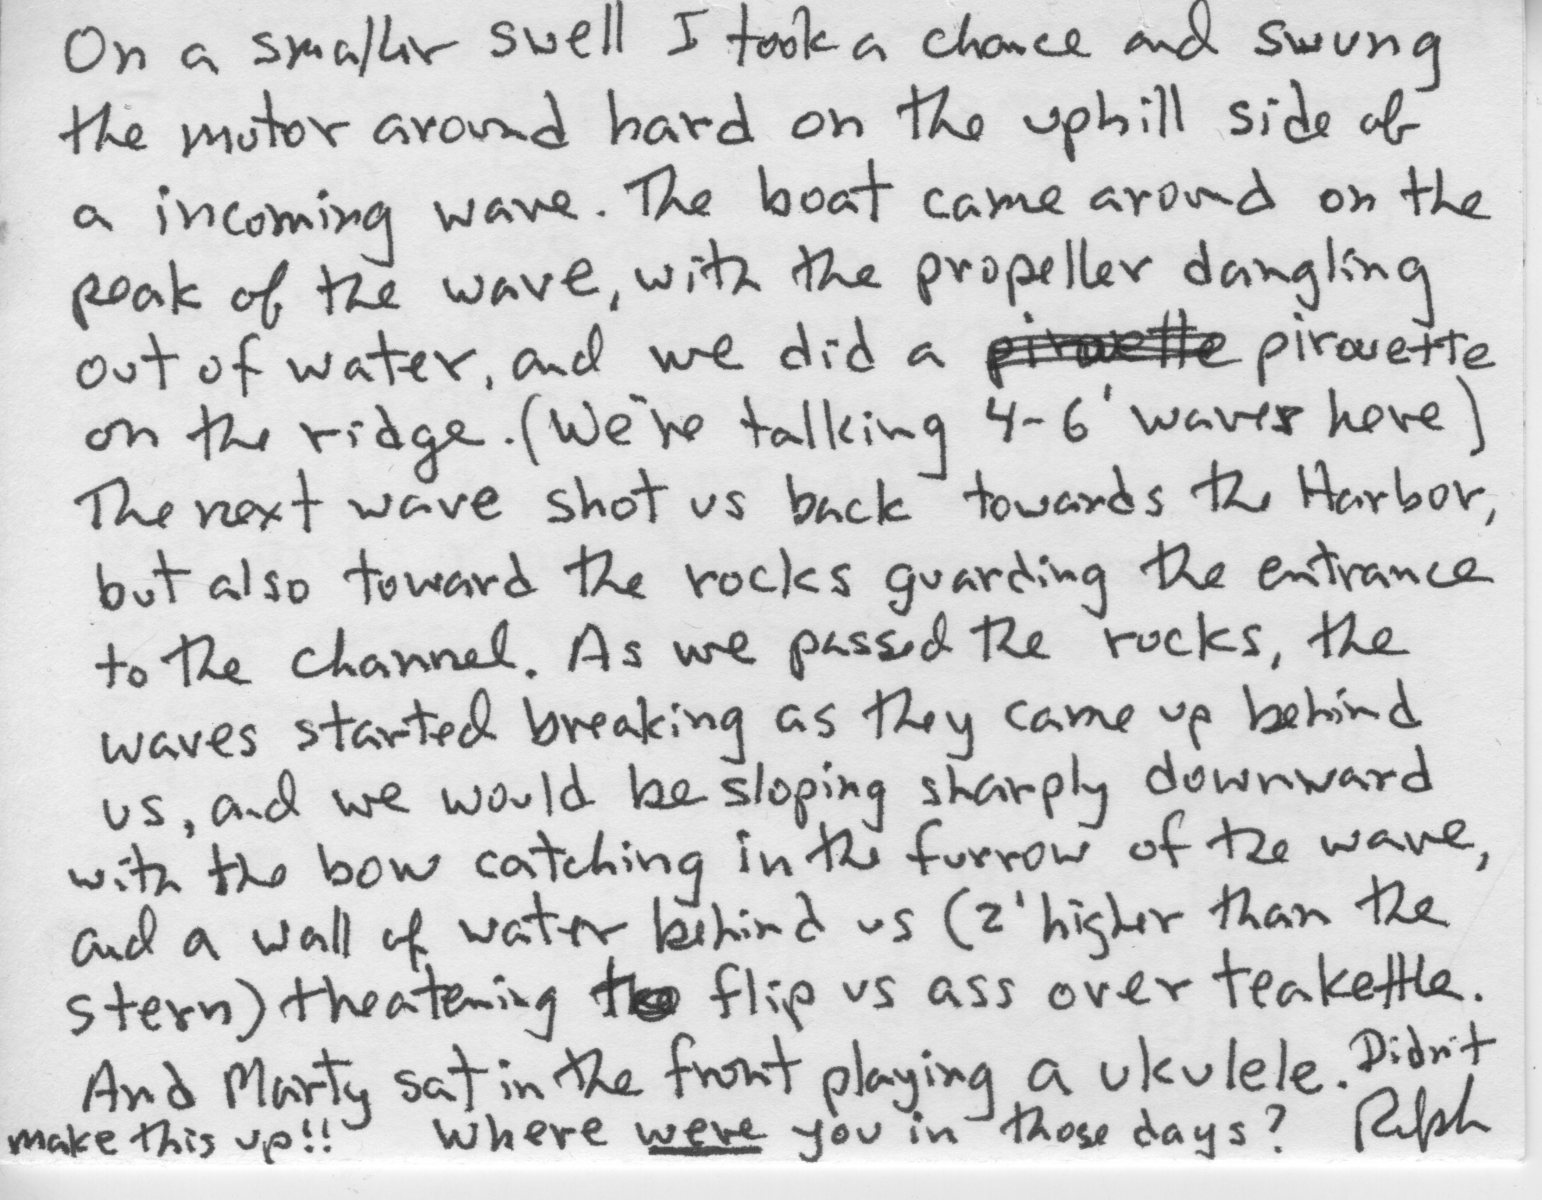 On a smaller swell I took a chance and swung
the motor around hard on the uphill side of
a incoming wave. The boat came around on the
peak of the wave, with the propeller dangling
out of water, and we did a pirouette pirouette
on the ridge. (We're talking 4-6' waves here)
The next wave shot us back towards the Harbor,
but also toward the rocks guarding the entrance
to the channel. As we passed the rocks, the
waves started breaking as they came up behind
us, and we would be sloping sharply downward
with the bow catching in the furrow of the wave,
and a wall of water behind us (2' higher than the
stern) theatening to flip us ass over teakettle.
And Marty sat in the front playing a ukulele. Didn't
make this up!! Where were you in those days? Ralph